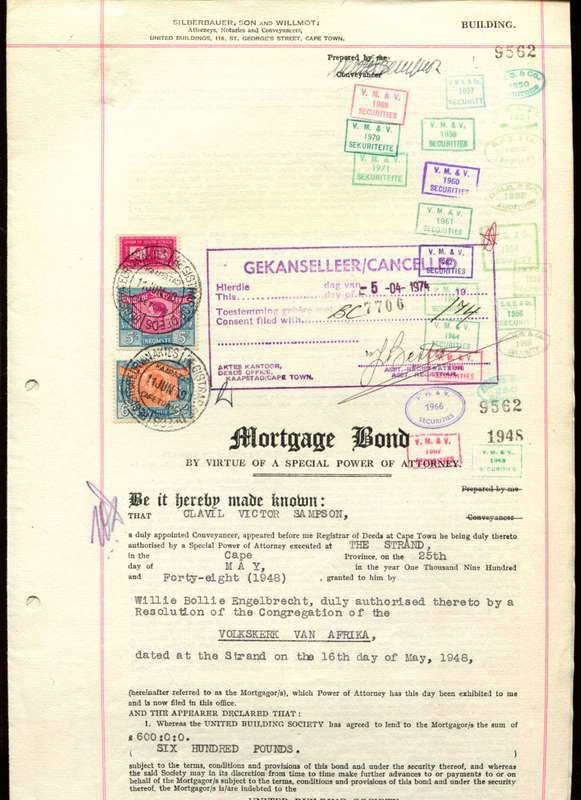 SILBERBAUER, SON AND WILLMOT:
Attorneys, Notaries and Conveyancers,
UNITED BUILDINGS, 118, ST. GEORGE'S STREET, CAPE TOWN.
BUILDING.
Prepared by me
Conveyancer
9562
V. M. & V.
1957
SECURITY
V. M. & V.
1969
SECURITIES
V. M. & V.
1970
SEKURITEITE
V. M. & V.
1971
SEKURITEITE
V. M. & V.
1959
SECURITIES
V. M. & V.
1960
SECURITIES
V. M. & V.
1961
SECURITIES
GEKANSELLEER/CANCELLED
Hierdie dag van
This day of 19
-5 -04- 1974
Toestemming
Consent filed with BC 7706 /74
AKTES KANTOOR,
DEEDS OFFICE,
KAAPSTAD/CAPE TOWN.
ASST. REGISTRATEUR
ASST. REGISTRAR
1964
SECURITIES
V. M. & V.
1966
SECURITIES
9562
1948
V. M. & V.
1967
SECURITIES
V. M. & V.
1968
SECURITIES
Mortgage Bond
BY VIRTUE OF A SPECIAL POWER OF ATTORNEY.
Prepared by me
Be it hereby made known:
THAT CLAVIL VICTOR SAMPSON, Conveyancer
a duly appointed Conveyancer, appeared before me Registrar of Deeds at Cape Town he being duly thereto
authorised by a Special Power of Attorney executed at THE STRAND,
in the Cape Province, on the 25th
day of MAY, in the year One Thousand Nine Hundred
and Forty-eight (1948) granted to him by
Willie Bollie Engelbrecht, duly authorised thereto by a
Resolution of the Congregation of the
VOLKSKERK VAN AFRIKA,
dated at the Strand on the 16th day of May, 1948,
(hereinafter referred to as the Mortgagor/s), which Power of Attorney has this day been exhibited to me
and is now filed in this office.
AND THE APPEARER DECLARED THAT :
1. Whereas the UNITED BUILDING SOCIETY has agreed to lend to the Mortgagor/s the sum of
£600:0:0.
( SIX HUNDRED POUNDS. )
subject to the terms, conditions and provisions of this bond and under the security thereof, and whereas
the said Society may in its discretion from time to time make further advances to or payments to or on
behalf of the Mortgagor/s subject to the terms, conditions and provisions of this bond and under the security
thereof, the Mortgagor/s is/are indebted to the
UNITED BUILDING SOCIETY